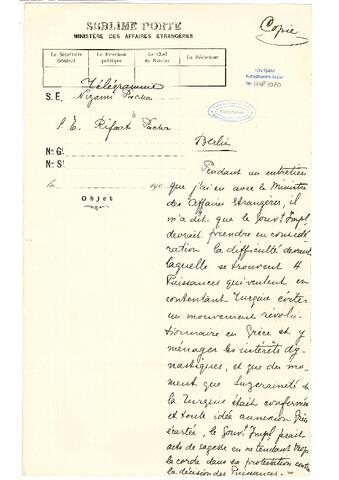 SUBLIME PORTE
MINISTÈRE DES AFFAIRES ÉTRANGÈRES
Copie
Le Secrétaire Général
Le Directeur politique
Le Chef du Bureau
Le Rédacteur
Télégramme
S.E. Nizami Pacha
à
S.E. Rifaat Pacha
N° Gl
N° Sl
Le 190
Objet
Berlin
Pendant un entretien
que j'ai eu avec le Ministre
des Affaires Etrangères, il
m'a dit que le Gouvt Impl
devrait prendre en considé
ration la difficulté devant
laquelle se trouvent 4
Puissances qui veulent en
contentant Turquie éviter
un mouvement révolu
tionnaire en Grèce et y
ménager les intérêts dy
nastiques, et que du mo
ment que Suzeraineté de
la Turquie était confirmée
et toute idée annexion
écartée, le Gouvt Impl ferait
acte de sagesse en ne tendant trop
la corde dans sa protestation contre
la décision des Puissances.